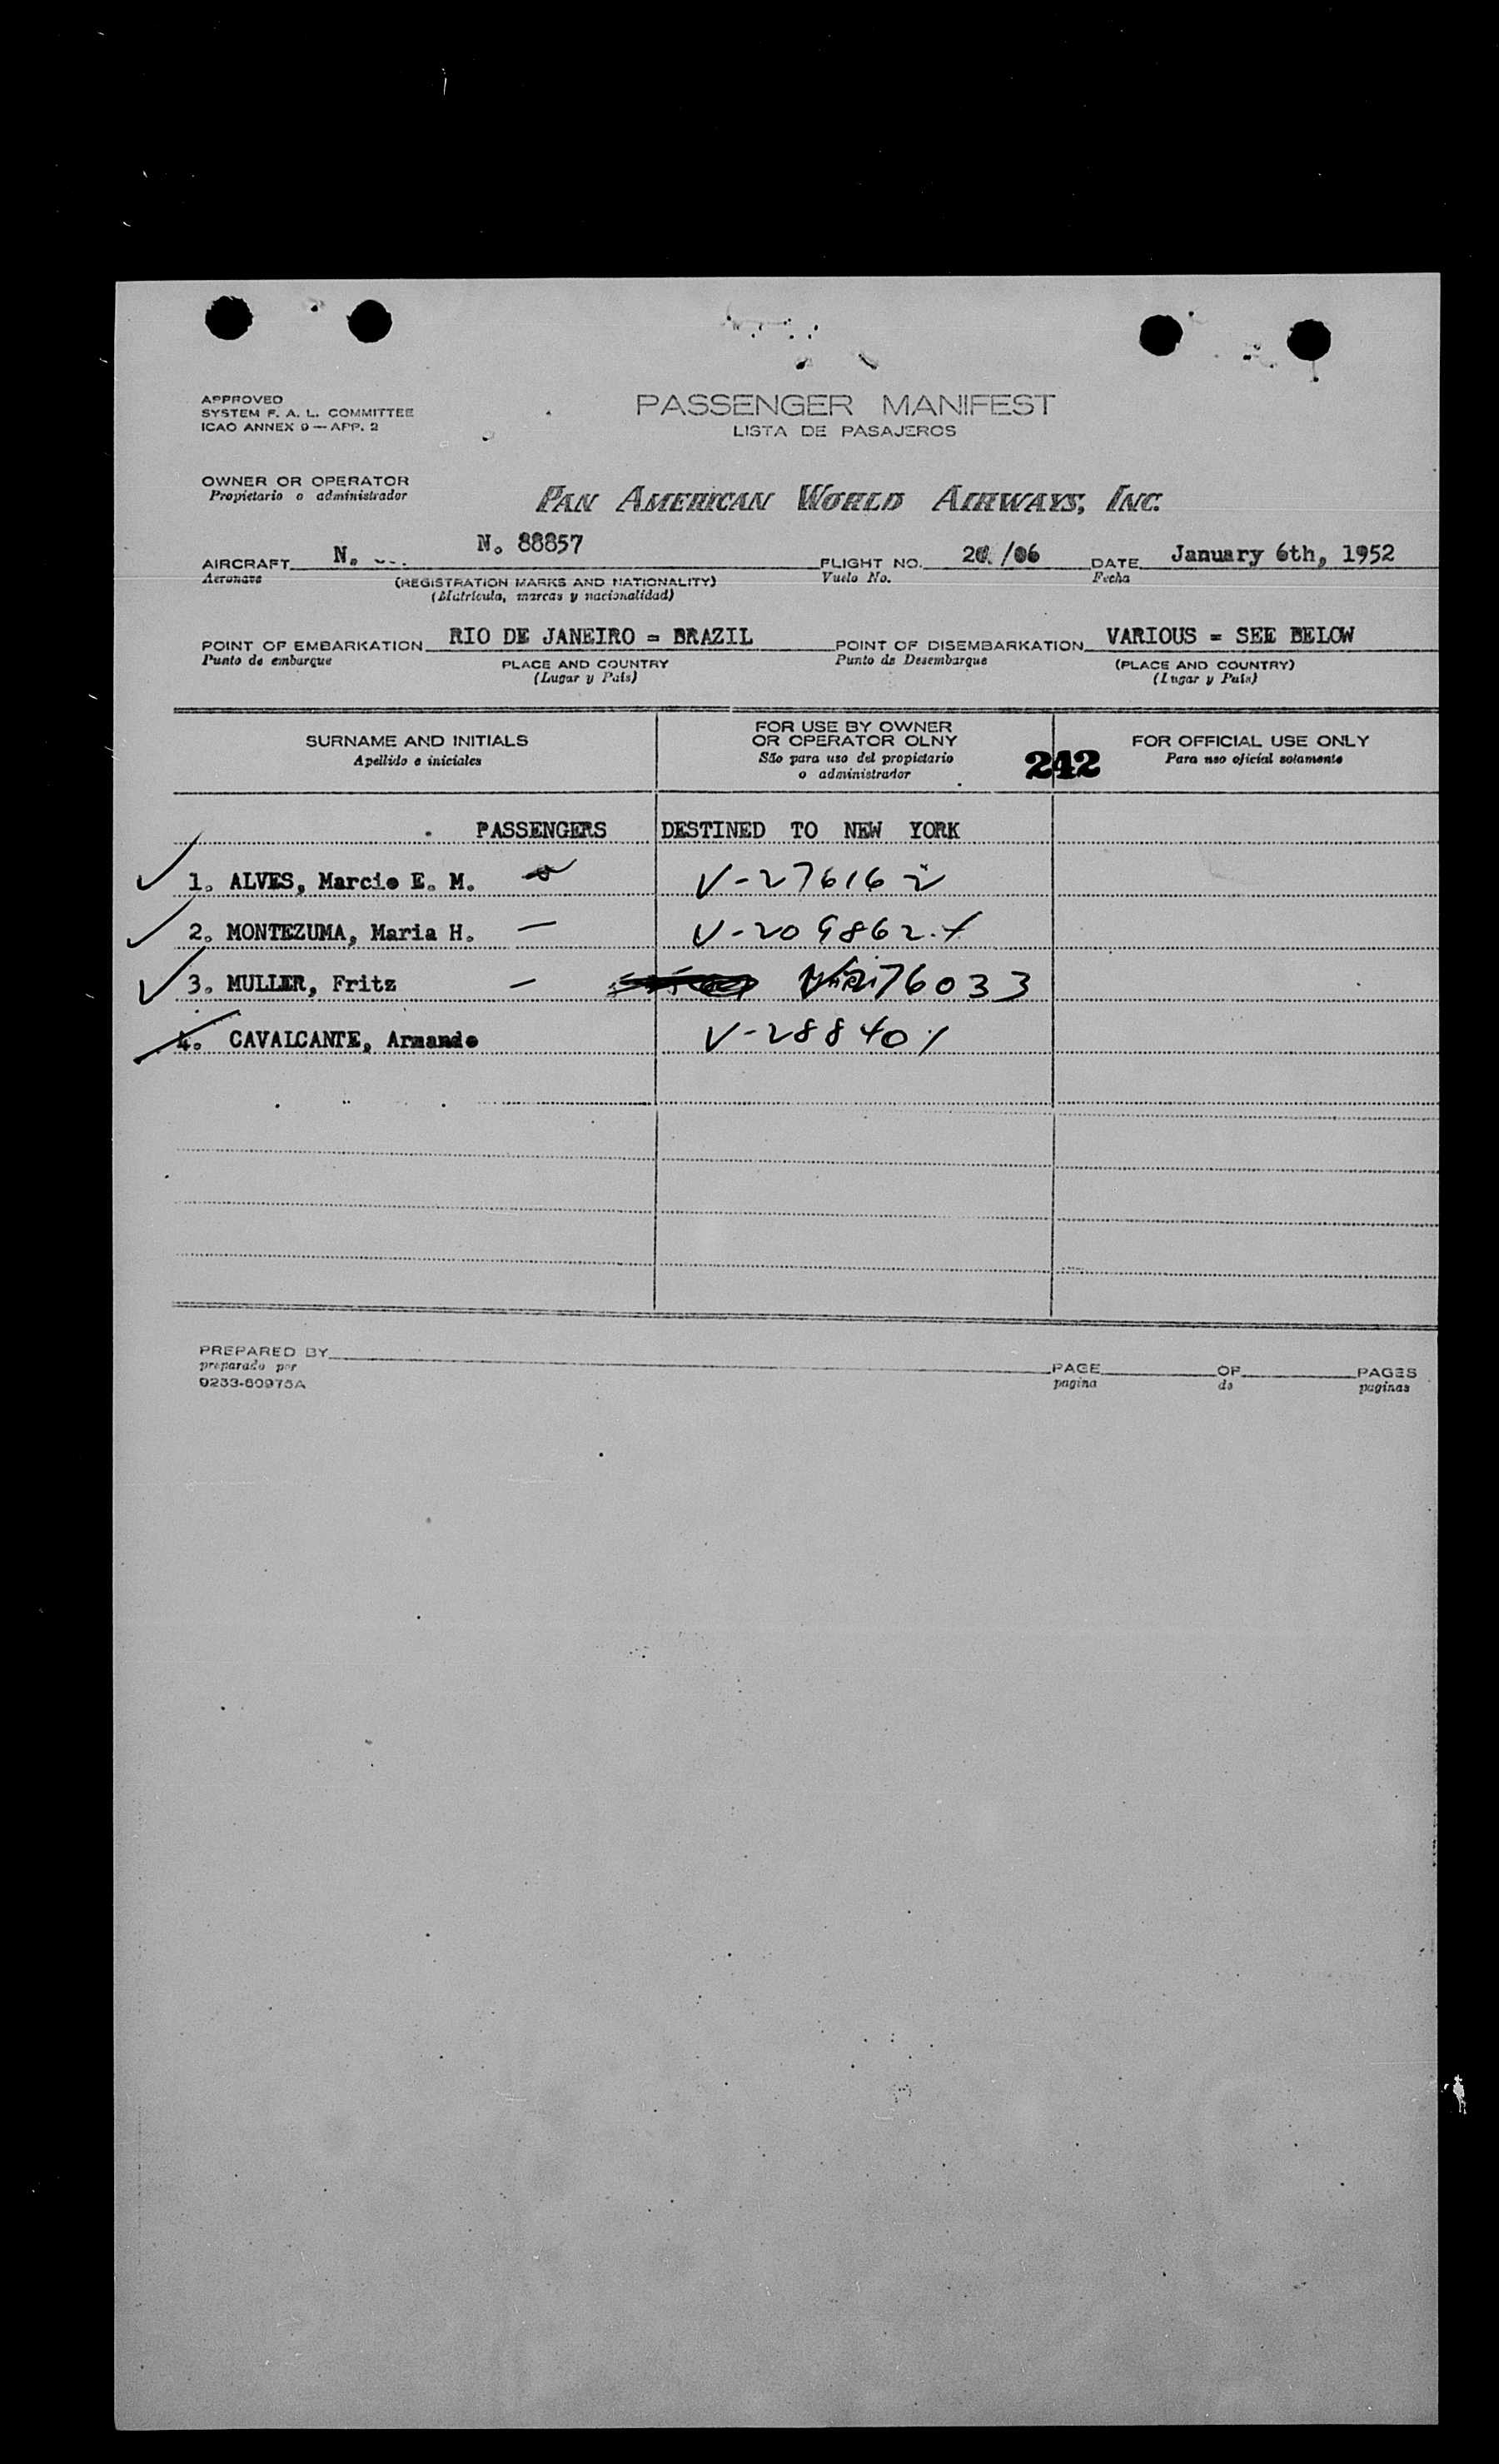 APPROVED
SYSTEM F. A. L. COMMITTEE
ICAO ANNEX 9 — APP. 2
PASSENGER MANIFEST
LISTA DE PASAJEROS
OWNER OR OPERATOR
Propietario o administrador
PAN AMERICAN WORLD AIRWAYS, INC.
AIRCRAFT N. N. 88857 FLIGHT NO. /06 DATE January 6th, 1952
Aeronave (REGISTRATION MARKS AND NATIONALITY) Vuelo No. Fecha
(Matrícula, marcas y nacionalidad)
POINT OF EMBARKATION RIO DE JANEIRO = BRAZIL POINT OF DISEMBARKATION VARIOUS = SEE BELOW
Punto de embarque PLACE AND COUNTRY Punto de Desembarque (PLACE AND COUNTRY)
(Lugar y País) (Lugar y País)
SURNAME AND INITIALS FOR USE BY OWNER OR OPERATOR OLNY FOR OFFICIAL USE ONLY
Apellido e iniciales São para uso del propietario o administrador 242 Para uso oficial solamente
PASSENGERS DESTINED TO NEW YORK
1. ALVES, Marcio E. M. V-276162
2. MONTEZUMA, Maria H. V-209862
3. MULLER, Fritz 76033
4. CAVALCANTE, Armando V-288401
PREPARED BY PAGE OF PAGES
preparado por pagina de paginas
0233-60975A